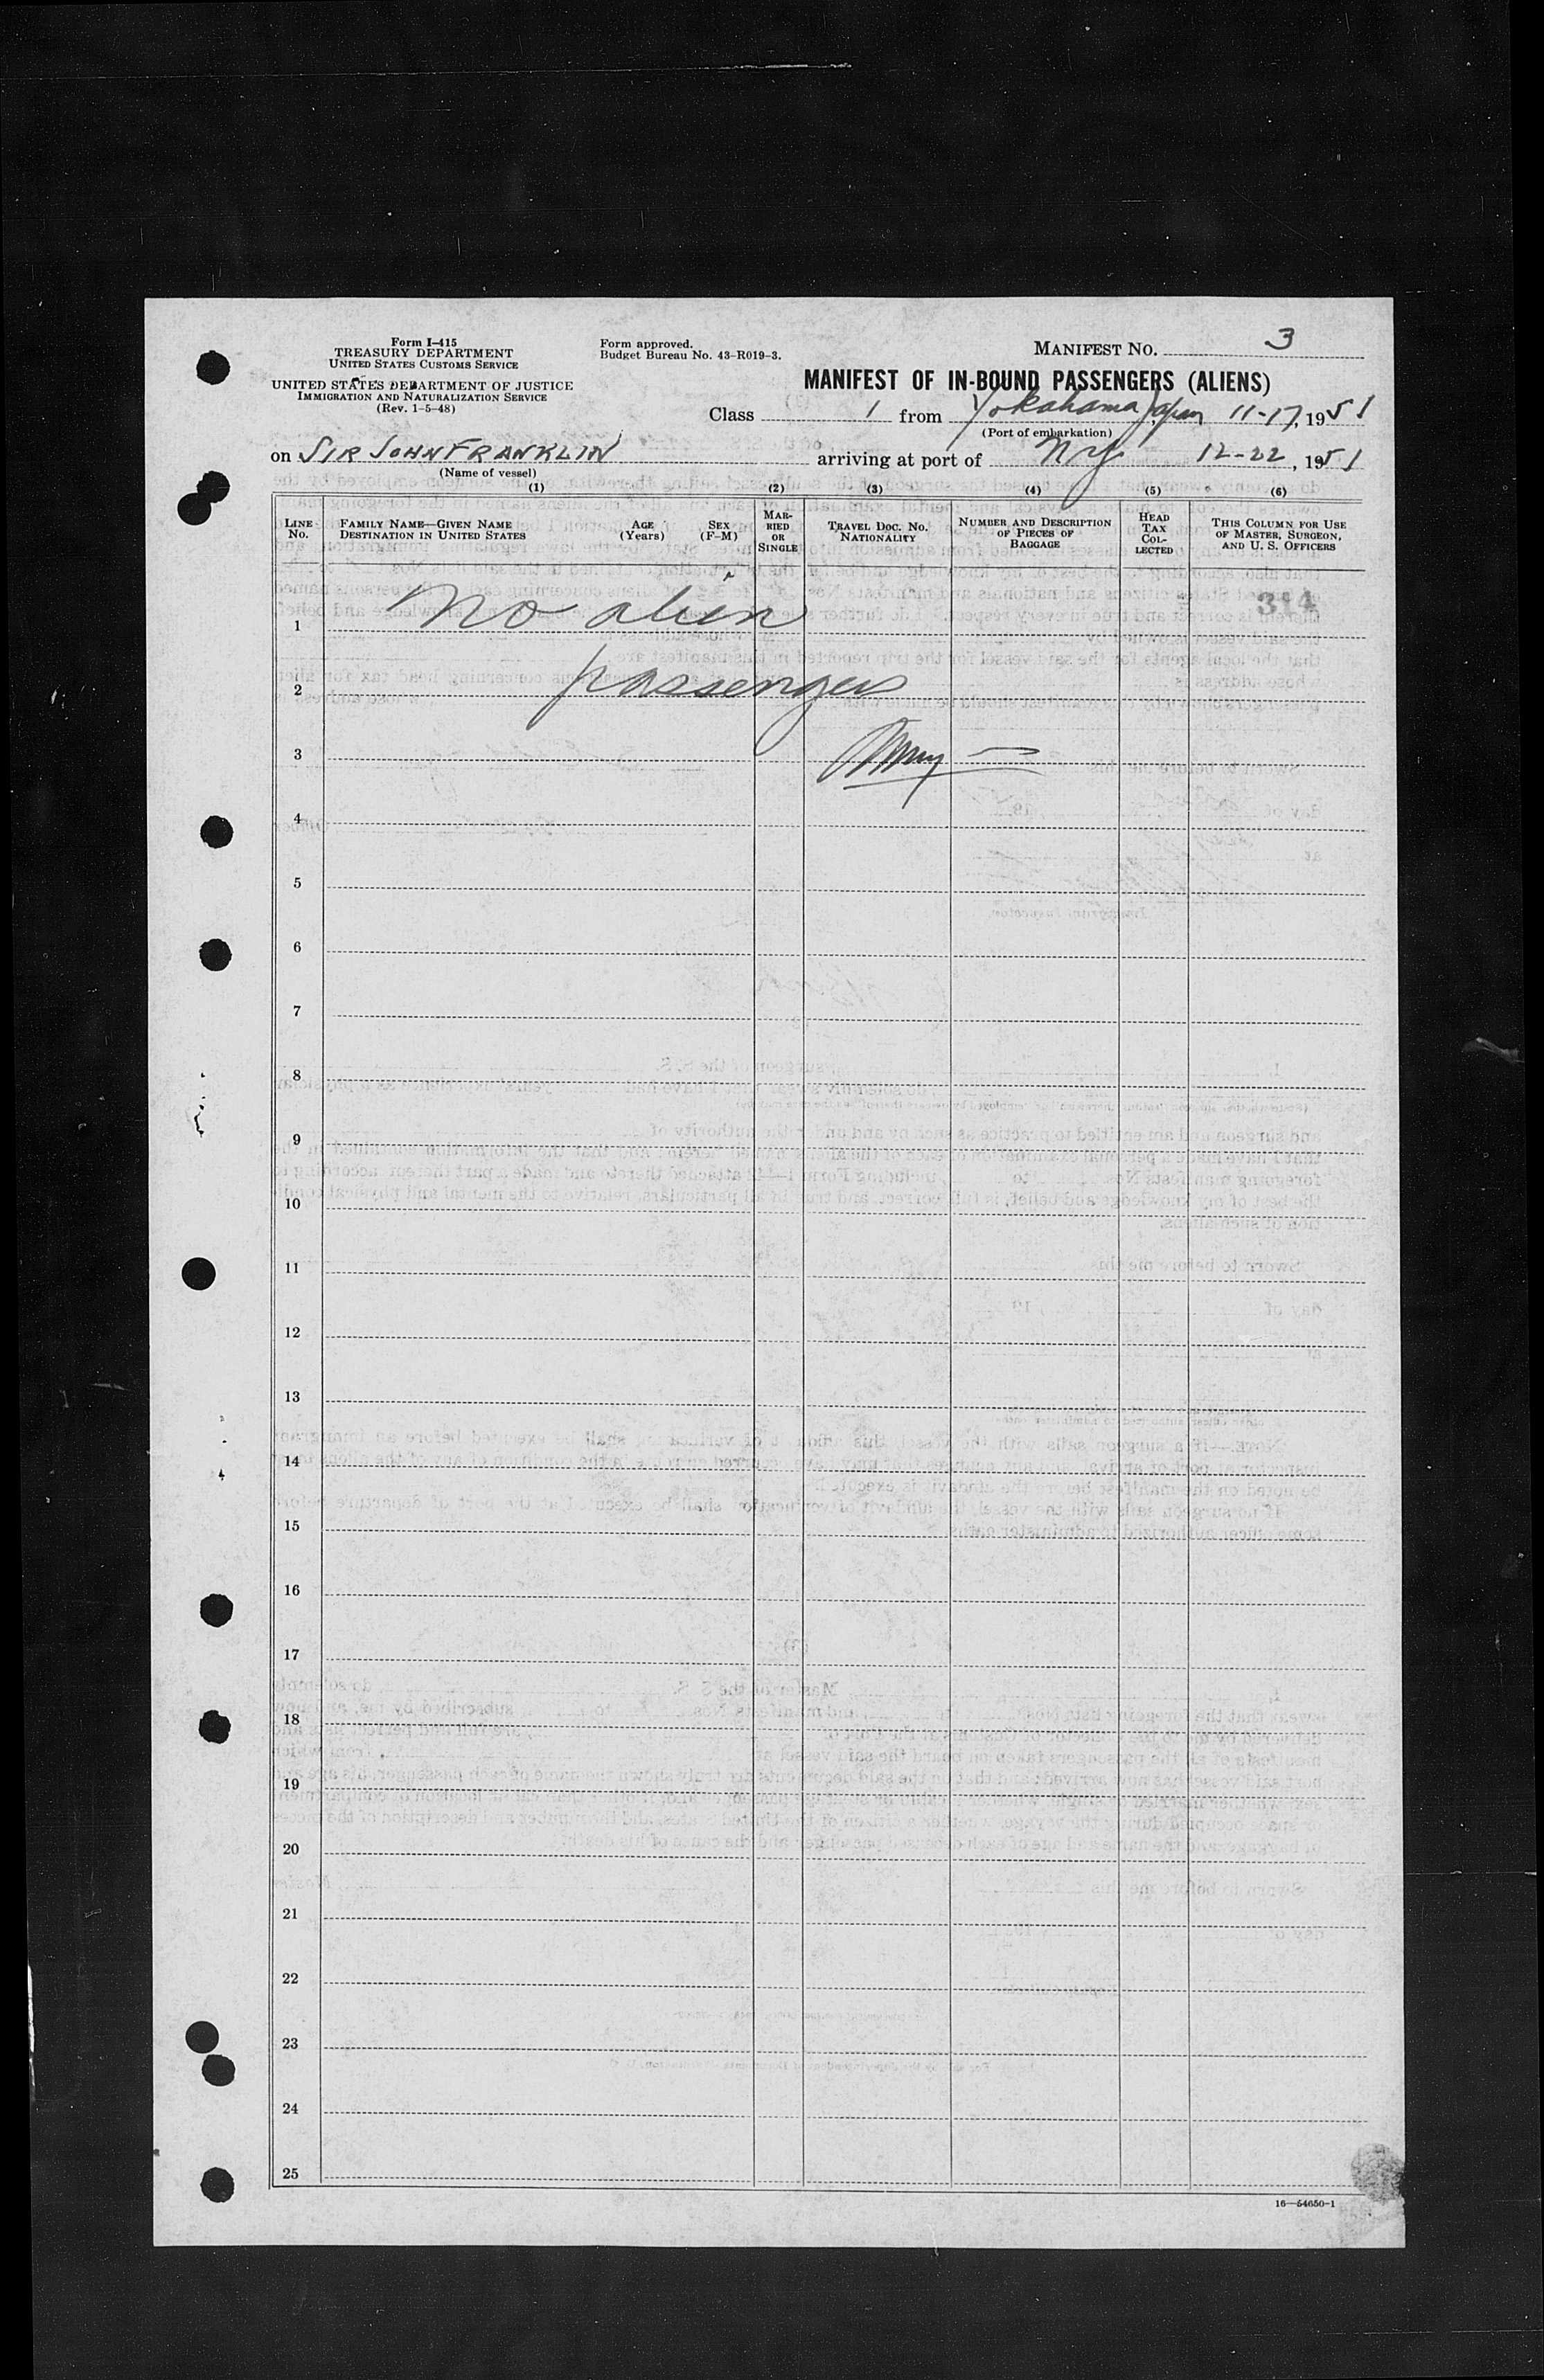 Form I-415
TREASURY DEPARTMENT
UNITED STATES CUSTOMS SERVICE
UNITED STATES DEPARTMENT OF JUSTICE
IMMIGRATION AND NATURALIZATION SERVICE
(Rev. 1-5-48)
Form approved.
Budget Bureau No. 43-R019-3.
MANIFEST No. 3
MANIFEST OF IN-BOUND PASSENGERS (ALIENS)
Class 1 from Yokahama Japan 11-17, 1951
(Port of embarkation)
on SIR JOHN FRANKLIN arriving at port of NY 12-22, 1951
(Name of vessel)
(1) (2) (3) (4) (5) (6)
LINE No.
FAMILY NAME—GIVEN NAME
DESTINATION IN UNITED STATES
AGE (Years)
SEX (F-M)
MARRIED OR SINGLE
TRAVEL DOC. NO.
NATIONALITY
NUMBER AND DESCRIPTION
OF PIECES OF
BAGGAGE
HEAD
TAX
COL-
LECTED
THIS COLUMN FOR USE
OF MASTER, SURGEON,
AND U. S. OFFICERS
314
1 No alien
2 passengers
3
4
5
6
7
8
9
10
11
12
13
14
15
16
17
18
19
20
21
22
23
24
25
16—54650-1